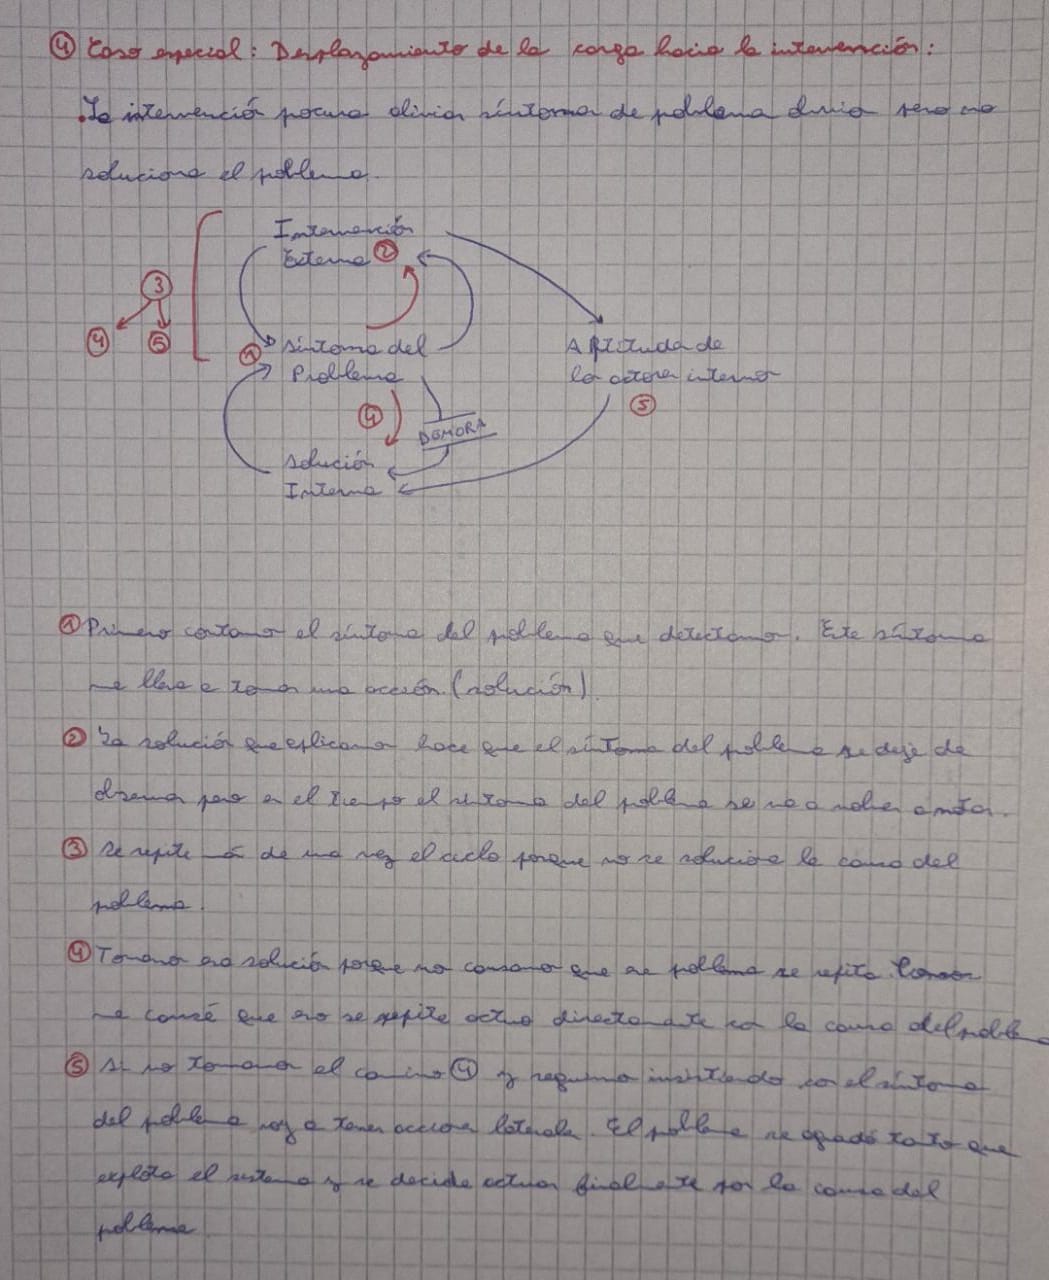 ④ Caso especial: Desplazamiento de la carga hacia la intervención:
. La intervención procura aliviar síntomas de problema pero no
soluciona el problema.
Intervención
Externa ②
③
④ ⑤
① Síntoma del
Problema
Aptitudes de
los actores internos
⑤
④
DEMORA
Solución
Interna
① Primero contamos el síntoma del problema que detectamos. Este síntoma
me lleva a tomar una acción (solución).
② La solución que aplicamos hace que el síntoma del problema se deje de
observar pero en el tiempo el síntoma del problema se va a volver a notar.
③ Se repite más de una vez el ciclo porque no se soluciona la causa del
problema.
④ Tomamos esa solución porque nos cansamos que ese problema se repita. Como
me cansé que eso se repite actuo directamente con la causa del problema
⑤ Si no tomamos el camino ④ y seguimos insistiendo con el síntoma
del problema voy a tener acciones laterales. El problema se agrandó tanto que
explota el sistema y se decide actuar finalmente por la causa del
problema.